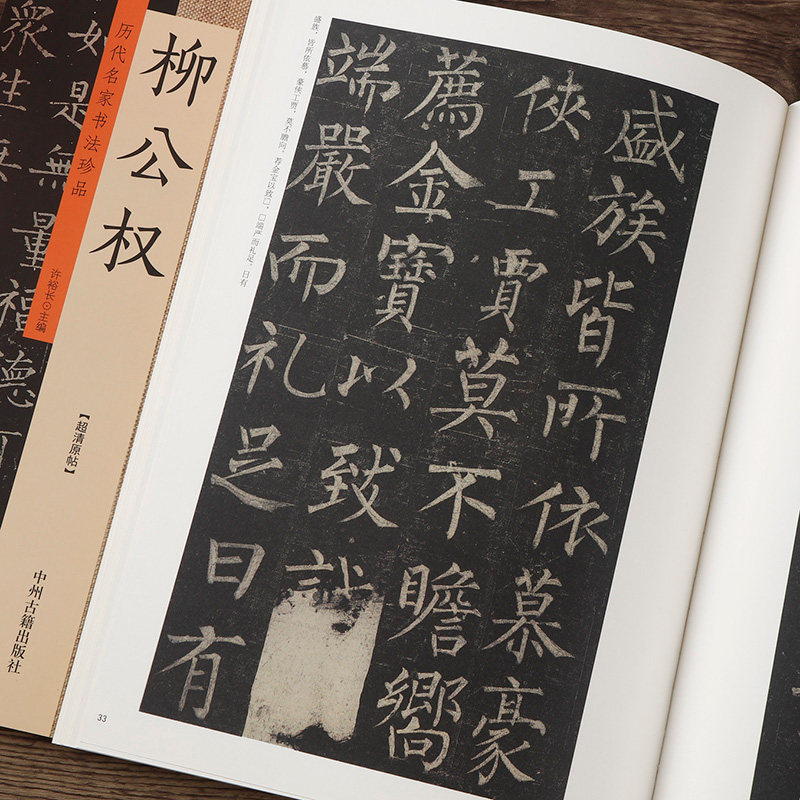 衆生
如是無量福德
历代名家书法珍品
柳公权
许裕长⊙主编
【超清原帖】
中州古籍出版社
盛族，皆所依慕，豪侠工贾，莫不瞻向，荐金宝以致□，□端严而礼足，日有
盛族皆所依慕豪
俠工賈莫不瞻嚮
薦金寶以致
端嚴而礼足日有
33